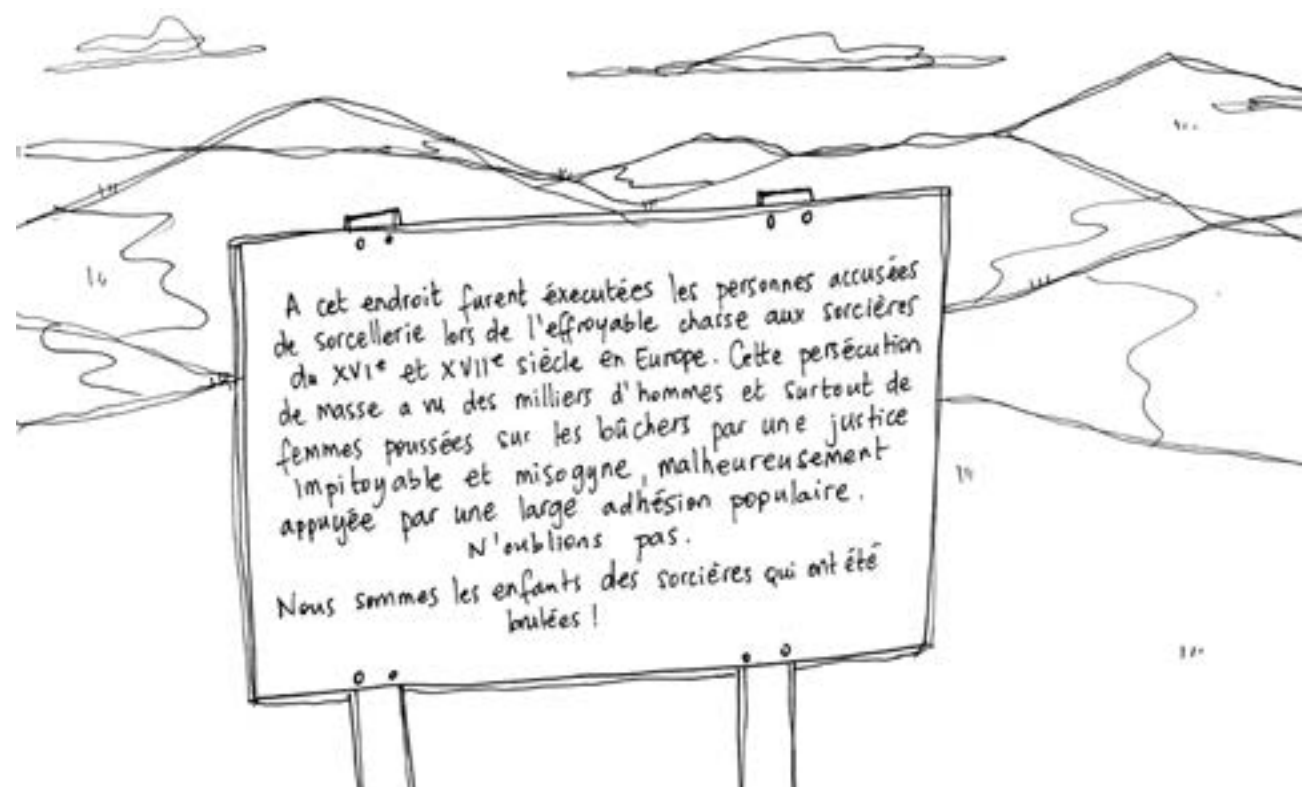 A cet endroit furent éxecutées les personnes accusées
de sorcellerie lors de l'effroyable chasse aux sorcières
du XVIe et XVIIe siècle en Europe. Cette persécution
de masse a vu des milliers d'hommes et surtout de
femmes poussées sur les bûchers par une justice
impitoyable et misogyne, malheureusement
appuyée par une large adhésion populaire.
N'oublions pas.
Nous sommes les enfants des sorcières qui ont été
brulées !